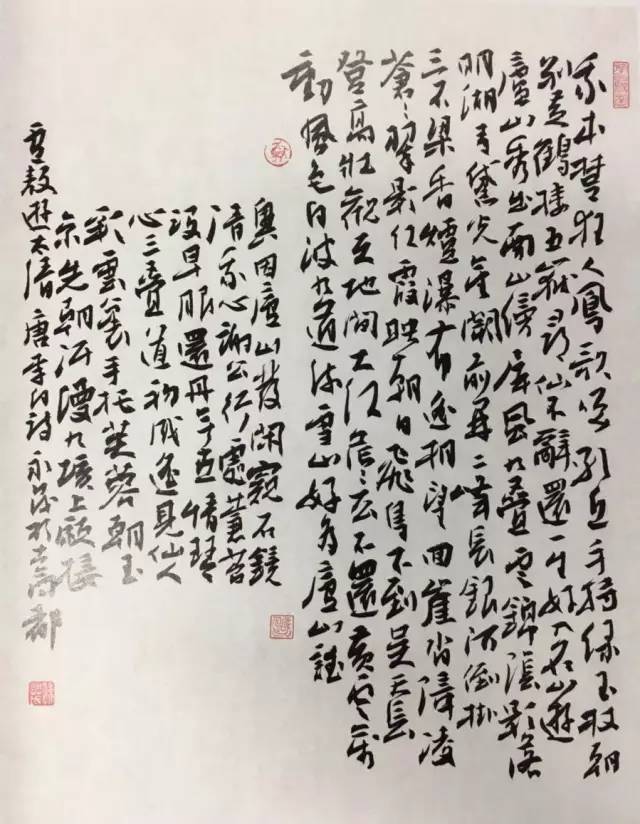 我本楚狂人鳳歌笑孔丘手持綠玉杖朝
別黃鶴樓五嶽尋仙不辭遠一生好入名山遊
廬山秀出南斗傍屏風九疊雲錦張影落
明湖青黛光金闕前開二峰長銀河倒掛
三石梁香爐瀑布遙相望迴崖沓嶂凌
蒼蒼翠影紅霞映朝日飛鳥不到吳天長
登高壯觀天地間大江茫茫去不還黃雲萬
動風色白波九道流雪山好為廬山謠
興因廬山發閑窺石鏡
清我心謝公行處蒼苔
沒早服還丹無世情琴
心三疊道初成遙見仙人
彩雲裏手把芙蓉朝玉
京先期汗漫九垓上願接
盧敖遊太清 唐李白詩